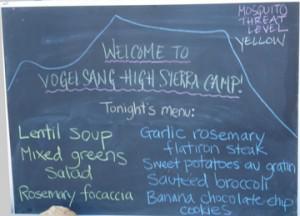 MOSQUITO
THREAT
LEVEL
YELLOW
WELCOME TO
VOGELSANG HIGH SIERRA CAMP!
Tonight's menu:
Lentil soup
Mixed greens
salad
Rosemary focaccia
Garlic rosemary
flatiron steak
Sweet potatoes au gratin
Sauteed broccoli
Banana chocolate-chip
cookies